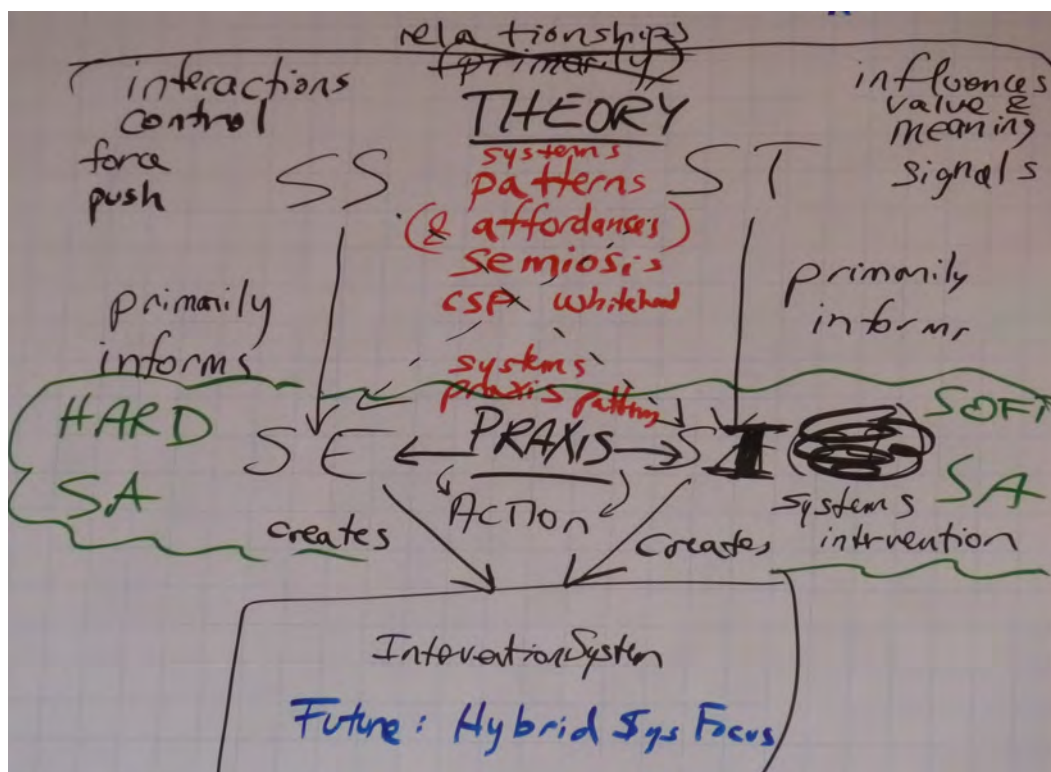 relationships
(primarily)
THEORY
interactions
control
force
push
influences
value &
meaning
signals
SS
ST
systems
patterns
(& affordances)
semiosis
CSP Whitehead
primarily
informs
primarily
informs
systems
praxis patterns
HARD
SA
SE
PRAXIS
SI
SOFT
SA
Action
systems
intervention
creates
creates
Intervention System
Future: Hybrid Sys Focus